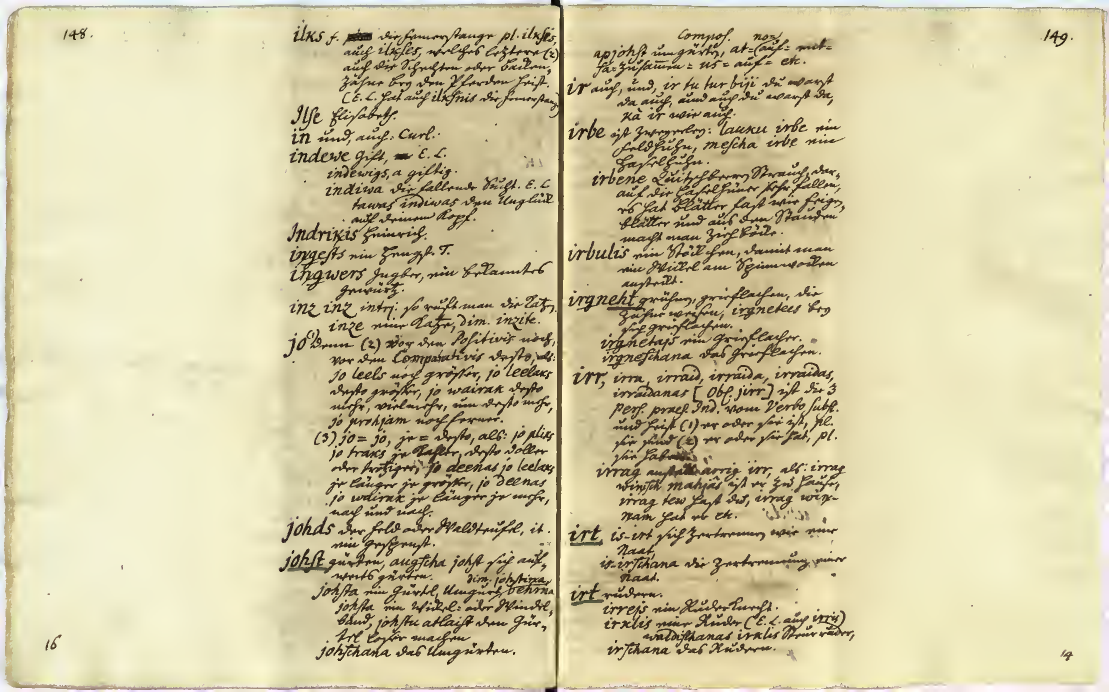 148.
ilks f. die Femerstange pl. ilkses,
auch ilkßes, welches letztere (2)
auch die Schechten oder Backen-
Zähne bey den Pferden heist.
(E. L. hat auch ilkßnis die Femerstang)
Ilse Elisabeth.
in und, auch. Curl.
indewe Gift, E. L.
indewigs, a giftig.
indiwa die fallende Sucht. E. L
taws indiwas den Unglück
auf deinen Kopf.
Indrikis Heinrich.
ingests ein Hengst T.
ingwers Ingber, ein bekanntes
gewürtz.
inz inz interj: so ruft man die Katz.
inze eine Katze, dim. inzite.
jo 1) denn (2) vor den Positivis noch,
vor den Comparativis desto, als:
jo leels noch größer, jo leelaks
desto größer, jo wairak desto
mehr, vielmehr, um desto mehr,
jo prohjam noch ferner.
(3) jo = jo, je = desto, als: jo pliks
jo traks je kahler, desto doller
oder trotziger, jo deenas jo leelaks
je länger je größer, jo deenas
jo wairak je länger je mehr,
nach und nach.
johds der Feld oder Waldteufel, it.
ein Gespenst.
johst gürten, augscha johst sich auf-
werts gürten. dim. johstina,
johsta ein Gürtel, Umgurt, behrna
johsta ein Wickel= oder Windel-
band, johstu atlaist den Gür-
tel loser machen
johschana das Umgürten.
16
149.
Compos. no=
apjohst umgürten, at= auf= eent=
sa= zusamm = us = auf = etc.
ir auch, und, ir tu tur biji du warst
da auch, und auch du warst da,
kà ir wie auch.
irbe ist zweyerley: lauku irbe ein
Feldhuhn, mescha irbe ein
Haselhuhn.
irbene Quitschbeern Strauch, dar-
auf die Haselhüner sehr fallen,
es hat blätter fast wie feigen
blätter und aus den Stauden
macht man
irbulis ein Stöckchen, damit man
ein Wickel am Spinnwocken
ansteckt.
irgneht grühnen, grieflachen, die
Zähne weisen, irgnetees bey
sich grieflachen.
irgnetajs ein Grieflacher.
irgneschana das Grieflachen.
irr, irra, irraid, irraida, irraidas,
irraidanas [Obs. jirr] ist die 3
Pers. praes. Ind. vom Verbo subst.
und heist (1) er oder sie ist, pl.
sie sind (2) er oder sie hat, pl.
sie haben
irrag anstatt arrig irr, als: irrag
winsch mahjâs ist er zu Hause,
irrag tew hast du, irrag win-
nam hat er etc.
irt is-irt sich zertrennen wie eine
Naat,
is-irschana die Zertrennung einer
Naat.
irt rudern.
irrejs ein Ruderknecht.
irklis eine Ruder (E. L. auch irris)
waldischanas irklis Steurruder,
irschana das Rudern.
14